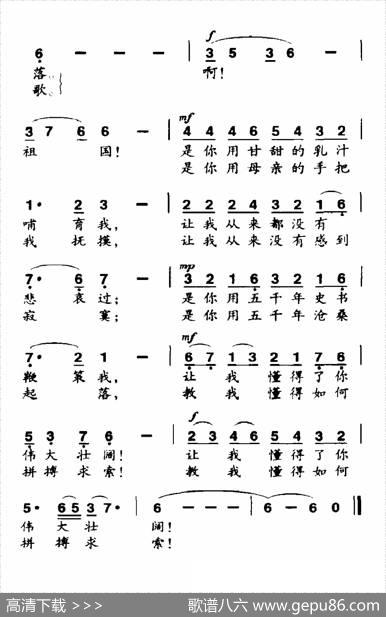 f
6 - - - | 3 5 3 6 - |
落。 啊!
歌。
mf
3 7 6 6 - - | 4 4 4 6 5 4 3 2 |
祖 国! 是你用甘甜的乳汁
是你用母亲的手把
1· 2 3 - | 2 2 2 4 3 2 1 6 |
哺 育我, 让我从来都没有
我 抚摸, 让我从来没有感到
mp
7· 6 7 - | 3 2 1 6 3 2 1 6 |
悲 哀过; 是你用五千年史书
寂 寞; 是你用五千年沧桑
mf
7· 2 1 - | 6 7 1 3 2 1 7 6 |
鞭 策我, 让 我 懂得了你
起 落, 教 我 懂得如何
f
5 3 7 6 - | 2 3 4 6 5 4 3 2 |
伟大壮阔! 让 我 懂得了你
拼搏求索! 教 我 懂得如何
5· 6 5 3 7· | 6 - - - | 6 - 6 0 ‖
伟 大 壮 阔!
拼 搏 求 索!
高清下载 >>> 歌谱八六 www.gepu86.com